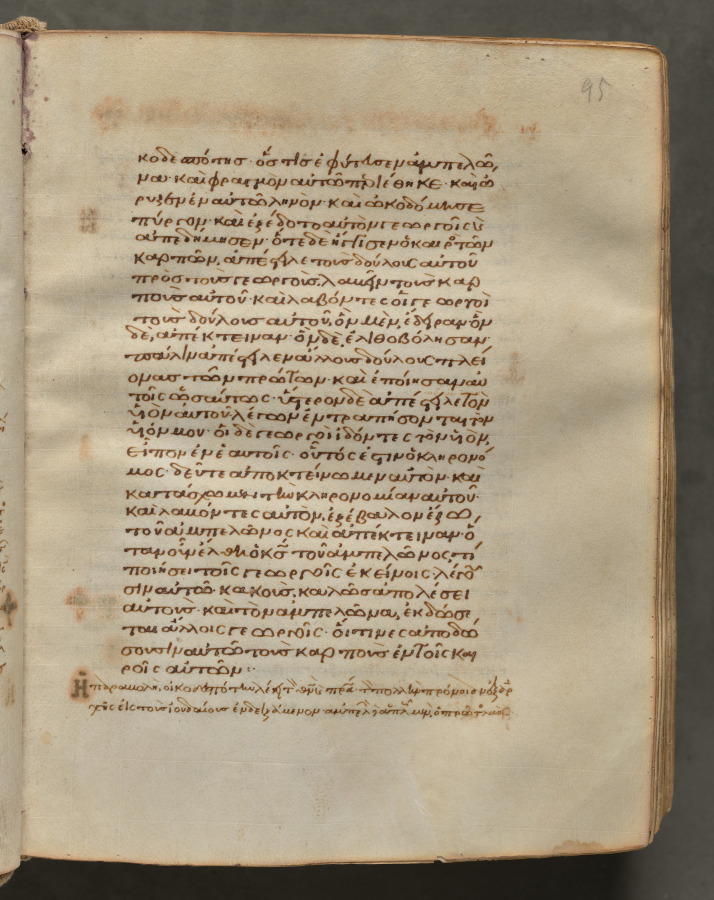 95
κοδεσπότης· ὅς τις ἐφύτευσεν ἀμπελῶ
να· καὶ φραγμὸν αὐτῶ περιέθηκε· καὶ ὤ
ρυξεν ἐν αὐτῶ ληνὸν· καὶ ὠκοδόμησε
πύργον· καὶ ἐξέδοτο αὐτὸν γεωργοῖς καὶ
ἀπεδήμησεν· ὅτε δὲ ἤγγισεν ὁ καιρὸς τῶν
καρπῶν, ἀπέστειλε τοὺς δούλους αὐτοῦ
πρὸς τοὺς γεωργοὺς λαβεῖν τοὺς καρ
ποὺς αὐτοῦ· καὶ λαβόντες οἱ γεωργοὶ
τοὺς δούλους αὐτοῦ, ὃν μὲν, ἔδειραν· ὃν
δὲ, ἀπέκτειναν· ὃν δὲ, ἐλιθοβόλησαν·
πάλιν ἀπέστειλεν ἄλλους δούλους πλεί
ονας τῶν πρώτων· καὶ ἐποίησαν αὐ
τοῖς ὡσαύτως· ὕστερον δὲ ἀπέστειλε τὸν
υἱὸν αὐτοῦ λέγων ἐντραπήσονται τὸν
υἱόν μου· οἱ δὲ γεωργοὶ ἰδόντες τὸν υἱὸν,
εἶπον ἐν ἑαυτοῖς· οὗτός ἐστιν ὁ κληρονό
μος· δεῦτε ἀποκτείνωμεν αὐτὸν· καὶ
κατάσχωμεν τὴν κληρονομίαν αὐτοῦ·
καὶ λαβόντες αὐτὸν, ἐξέβαλον ἔξω
τοῦ ἀμπελῶνος καὶ ἀπέκτειναν· ὅ
ταν οὖν ἔλθη ὁ κς τοῦ ἀμπελῶνος, τί
ποιήσει τοῖς γεωργοῖς ἐκείνοις· λέγου
σιν αὐτῶ· κακοὺς, κακῶς ἀπολέσει
αὐτοὺς· καὶ τὸν ἀμπελῶνα, ἐκδώσε
ται ἄλλοις γεωργοῖς· οἵτινες ἀποδώ
σουσιν αὐτῶ τοὺς καρποὺς ἐν τοῖς και
ροῖς αὐτῶν:·
Ἡ παραβολὴ, οἰκονομίαν
εἰς τοὺς ἰουδαίους ἐνδειξάμενον